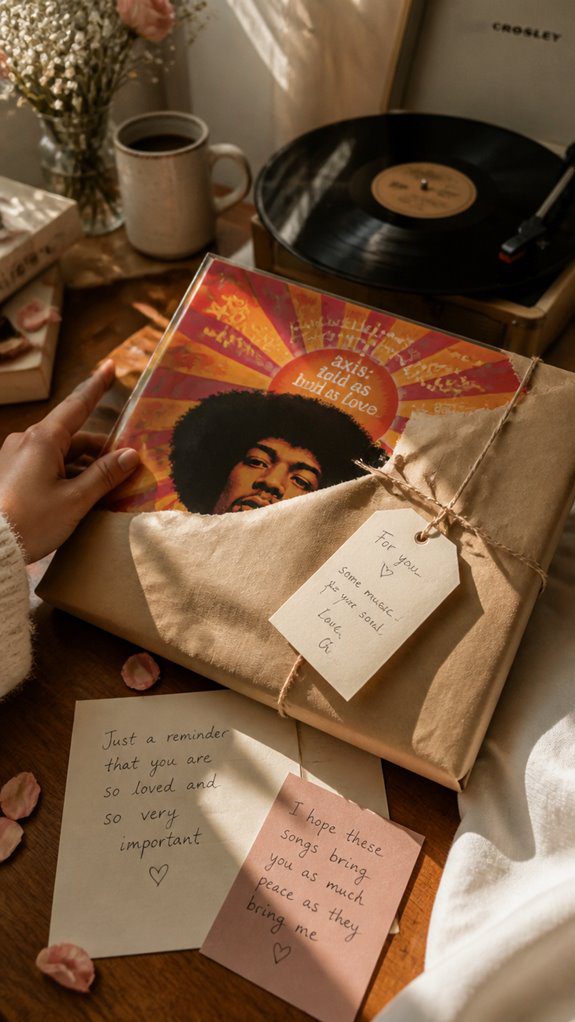 CROSLEY
axis:
told as
bold as love
For you
♡
some music
for your soul.
Love,
Just a reminder
that you are
so loved and
so very
important
♡
I hope these
songs bring
you as much
peace as they
bring me
♡